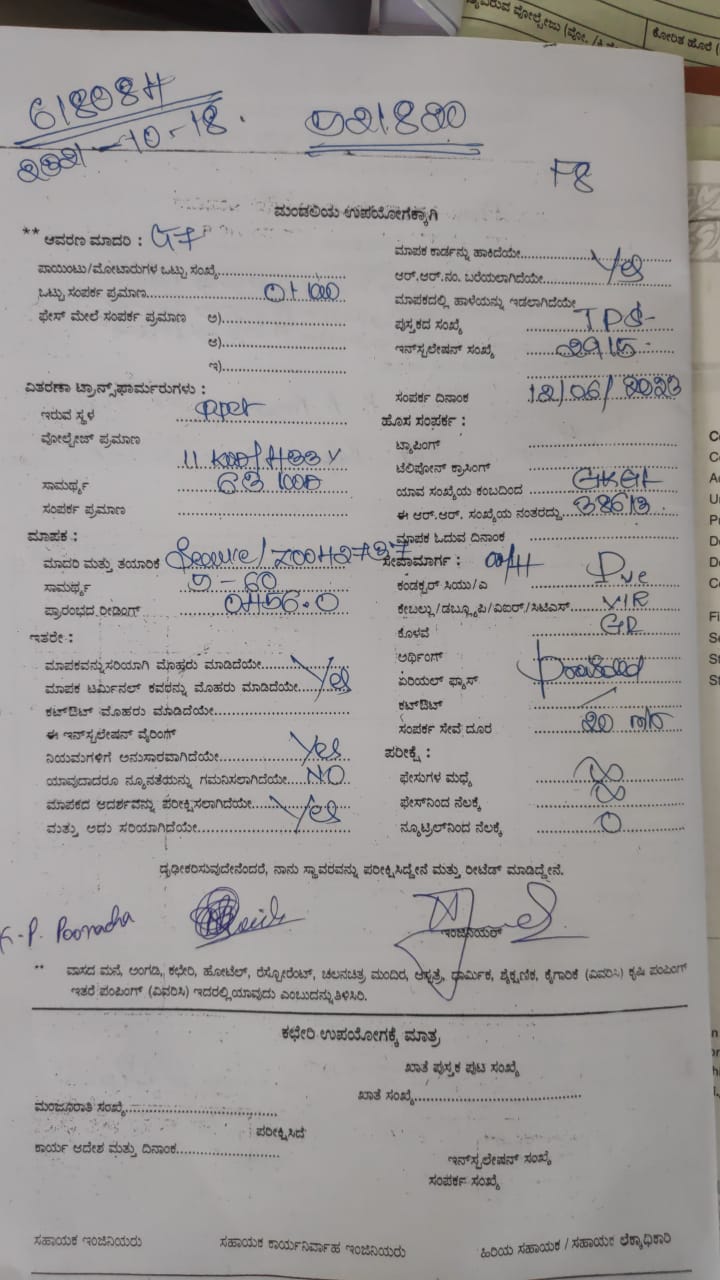 ಕೋರಿತ ಹೊರೆ (
61808H
2021-10-18.
F8
ಮಂಡಲಿಯ ಉಪಯೋಗಕ್ಕಾಗಿ
** ಆವರಣ ಮಾದರಿ :
ಪಾಯಿಂಟು/ಮೋಟಾರುಗಳ ಒಟ್ಟು ಸಂಖ್ಯೆ
ಒಟ್ಟು ಸಂಪರ್ಕ ಪ್ರಮಾಣ
ಫೇಸ್ ಮೇಲೆ ಸಂಪರ್ಕ ಪ್ರಮಾಣ ಅ)
ಆ)
ಇ)
ವಿತರಣಾ ಟ್ರಾನ್ಸ್‌ಫಾರ್ಮರುಗಳು :
ಇರುವ ಸ್ಥಳ
ವೋಲ್ಟೇಜ್ ಪ್ರಮಾಣ
ಸಾಮರ್ಥ್ಯ 63
ಸಂಪರ್ಕ ಪ್ರಮಾಣ
ಮಾಪಕ :
ಮಾದರಿ ಮತ್ತು ತಯಾರಿಕೆ Secure/
ಸಾಮರ್ಥ್ಯ 5-60
ಪ್ರಾರಂಭದ ರೀಡಿಂಗ್
ಇತರೇ :
ಮಾಪಕವನ್ನು ಸರಿಯಾಗಿ ಮೊಹರು ಮಾಡಿದೆಯೇ
ಮಾಪಕ ಟರ್ಮಿನಲ್ ಕವರನ್ನು ಮೊಹರು ಮಾಡಿದೆಯೇ Yes
ಕಟ್‌ಔಟ್ ಮೊಹರು ಮಾಡಿದೆಯೇ
ಈ ಇನ್‌ಸ್ಟಲೇಷನ್ ವೈರಿಂಗ್
ನಿಯಮಗಳಿಗೆ ಅನುಸಾರವಾಗಿದೆಯೇ Yes
ಯಾವುದಾದರೂ ನ್ಯೂನತೆಯನ್ನು ಗಮನಿಸಲಾಗಿದೆಯೇ NO
ಮಾಪಕದ ಆದರ್ಶವನ್ನು ಪರೀಕ್ಷಿಸಲಾಗಿದೆಯೇ Yes
ಮತ್ತು ಅದು ಸರಿಯಾಗಿದೆಯೇ
ಮಾಪಕ ಕಾರ್ಡನ್ನು ಹಾಕಿದೆಯೇ
ಆರ್.ಆರ್.ನಂ. ಬರೆಯಲಾಗಿದೆಯೇ Yes
ಮಾಪಕದಲ್ಲಿ ಹಾಳೆಯನ್ನು ಇಡಲಾಗಿದೆಯೇ
ಪುಸ್ತಕದ ಸಂಖ್ಯೆ
ಇನ್‌ಸ್ಟಲೇಷನ್ ಸಂಖ್ಯೆ 2915
ಸಂಪರ್ಕ ದಿನಾಂಕ 12/06/2023
ಹೊಸ ಸಂಪರ್ಕ :
ಟ್ಯಾಪಿಂಗ್
ಟೆಲಿಫೋನ್ ಕ್ರಾಸಿಂಗ್
ಯಾವ ಸಂಖ್ಯೆಯ ಕಂಬದಿಂದ
ಈ ಆರ್.ಆರ್. ಸಂಖ್ಯೆಯ ನಂತರದ್ದು
ಮಾಪಕ ಓದುವ ದಿನಾಂಕ
ಸೇವಾಮಾರ್ಗ : O/H
ಕಂಡಕ್ಟರ್ ಸಿಯು/ಎ Pvc
ಕೇಬಲ್ಲು/ಡಬ್ಲ್ಯೂಪಿ/ವಿಐಆರ್/ಸಿಟಿಎಸ್ VIR
ಕೊಳವೆ
ಅರ್ಥಿಂಗ್
ಏರಿಯಲ್ ಫ್ಯೂಸ್ Provided
ಕಟ್‌ಔಟ್
ಸಂಪರ್ಕ ಸೇವೆ ದೂರ 20
ಪರೀಕ್ಷೆ :
ಫೇಸುಗಳ ಮಧ್ಯೆ ∞
ಫೇಸ್‌ನಿಂದ ನೆಲಕ್ಕೆ ∞
ನ್ಯೂಟ್ರಲ್‌ನಿಂದ ನೆಲಕ್ಕೆ 0
ದೃಢೀಕರಿಸುವುದೇನೆಂದರೆ, ನಾನು ಸ್ಥಾವರವನ್ನು ಪರೀಕ್ಷಿಸಿದ್ದೇನೆ ಮತ್ತು ರೀಟೆಡ್ ಮಾಡಿದ್ದೇನೆ.
K.P. Poonacha
ಇಂಜಿನಿಯರ್
** ವಾಸದ ಮನೆ, ಅಂಗಡಿ, ಕಛೇರಿ, ಹೋಟೆಲ್, ರೆಸ್ಟೋರೆಂಟ್, ಚಲನಚಿತ್ರ ಮಂದಿರ, ಆಸ್ಪತ್ರೆ, ಧಾರ್ಮಿಕ, ಶೈಕ್ಷಣಿಕ, ಕೈಗಾರಿಕೆ (ವಿವರಿಸಿ) ಕೃಷಿ ಪಂಪಿಂಗ್
ಇತರೆ ಪಂಪಿಂಗ್ (ವಿವರಿಸಿ) ಇದರಲ್ಲಿ ಯಾವುದು ಎಂಬುದನ್ನು ತಿಳಿಸಿರಿ.
ಕಛೇರಿ ಉಪಯೋಗಕ್ಕೆ ಮಾತ್ರ
ಖಾತೆ ಪುಸ್ತಕ ಪುಟ ಸಂಖ್ಯೆ
ಖಾತೆ ಸಂಖ್ಯೆ
ಮಂಜೂರಾತಿ ಸಂಖ್ಯೆ
ಪರೀಕ್ಷಿಸಿದೆ
ಕಾರ್ಯ ಆದೇಶ ಮತ್ತು ದಿನಾಂಕ
ಇನ್‌ಸ್ಟಲೇಷನ್ ಸಂಖ್ಯೆ
ಸಂಪರ್ಕ ಸಂಖ್ಯೆ
ಸಹಾಯಕ ಇಂಜಿನಿಯರು
ಸಹಾಯಕ ಕಾರ್ಯನಿರ್ವಾಹ ಇಂಜಿನಿಯರು
ಹಿರಿಯ ಸಹಾಯಕ / ಸಹಾಯಕ ಲೆಕ್ಕಾಧಿಕಾರಿ